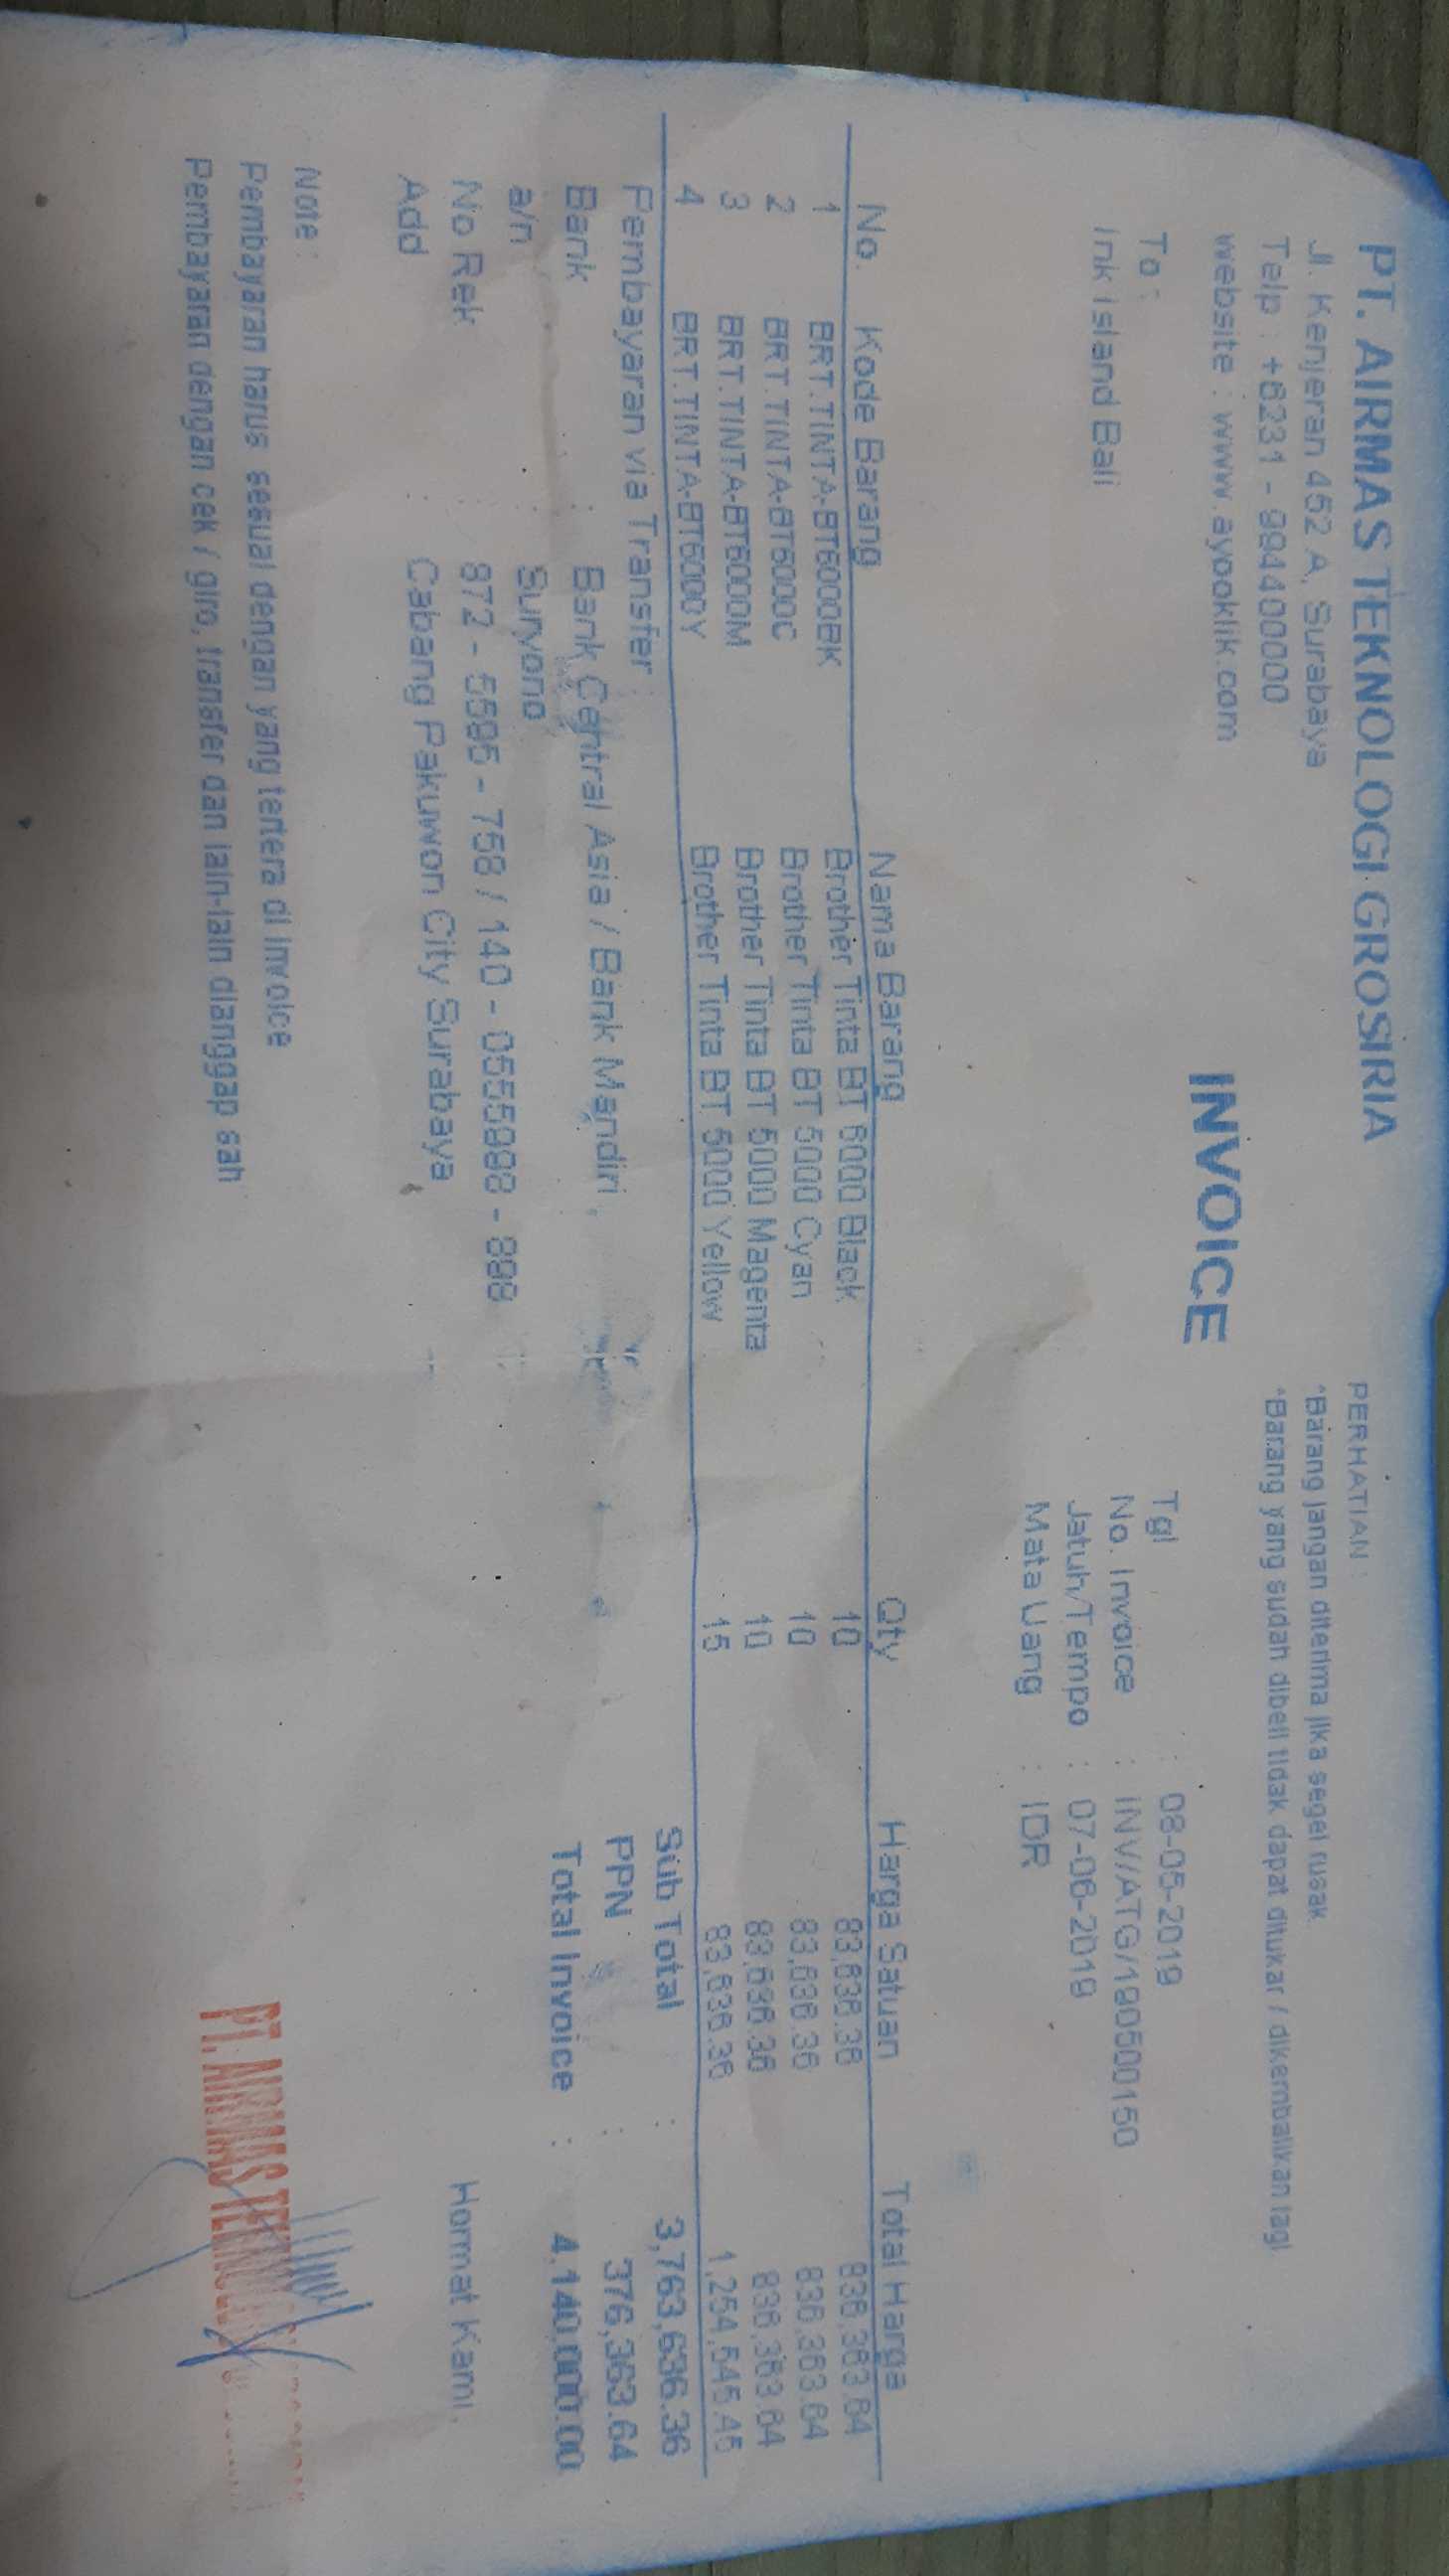 PT. AIRMAS TEKNOLOGI GROSIRIA
Jl. Kenjeran 452 A, Surabaya
Telp : +6231 - 99440000
website : www.ayooklik.com
PERHATIAN :
*Barang jangan diterima jika segel rusak
*Barang yang sudah dibeli tidak dapat ditukar / dikembalikan lagi
INVOICE
To :
Ink Island Bali
Tgl : 08-05-2019
No. Invoice : INV/ATG/190500150
Jatuh/Tempo : 07-06-2019
Mata Uang : IDR
No. Kode Barang Nama Barang Qty Harga Satuan Total Harga
1 BRT.TINTA-BT6000BK Brother Tinta BT 6000 Black 10 83,636.36 836,363.64
2 BRT.TINTA-BT5000C Brother Tinta BT 5000 Cyan 10 83,636.36 836,363.64
3 BRT.TINTA-BT5000M Brother Tinta BT 5000 Magenta 10 83,636.36 836,363.64
4 BRT.TINTA-BT5000Y Brother Tinta BT 5000 Yellow 15 83,636.36 1,254,545.45
Sub Total : 3,763,636.36
PPN : 376,363.64
Total Invoice : 4,140,000.00
Pembayaran via Transfer :
Bank : Bank Central Asia / Bank Mandiri
a/n : Suryono
No Rek : 872 - 5595 - 758 / 140 - 0555888 - 898
Add : Cabang Pakuwon City Surabaya
Hormat Kami,
Note :
Pembayaran harus sesuai dengan yang tertera di invoice
Pembayaran dengan cek / giro, transfer dan lain-lain dianggap sah
PT. AIRMAS